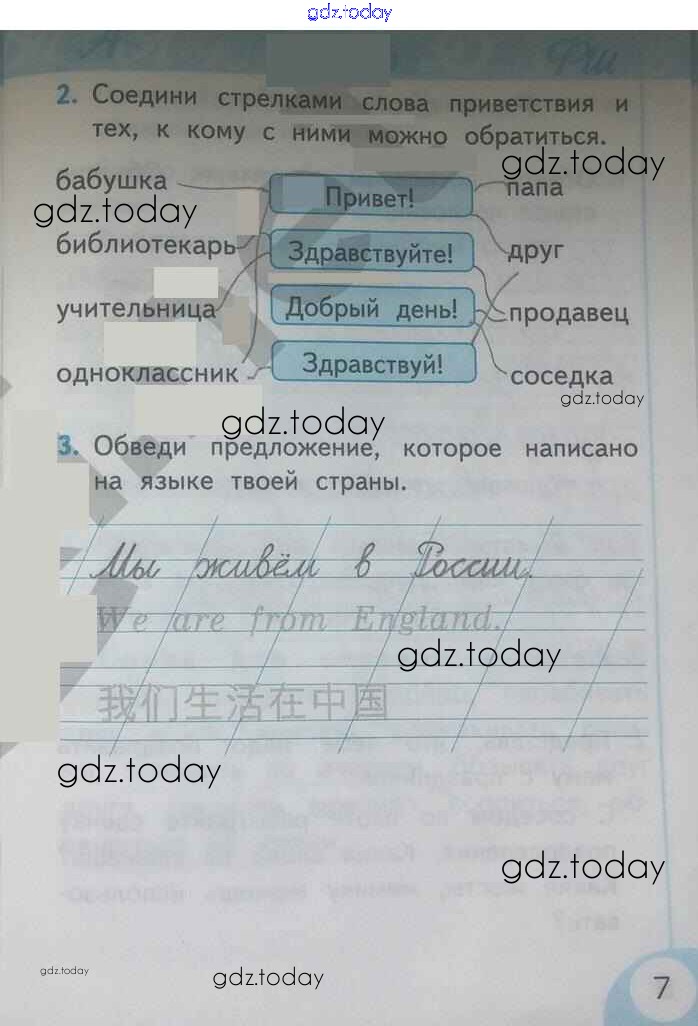 gdz.today
2. Соедини стрелками слова приветствия и
тех, к кому с ними можно обратиться.
gdz.today
бабушка Привет! папа
gdz.today
библиотекарь Здравствуйте! друг
учительница Добрый день! продавец
одноклассник Здравствуй! соседка
gdz.today
gdz.today
3. Обведи предложение, которое написано
на языке твоей страны.
Мы живём в России.
We are from England.
gdz.today
我们生活在中国
gdz.today
gdz.today
gdz.today
gdz.today
7